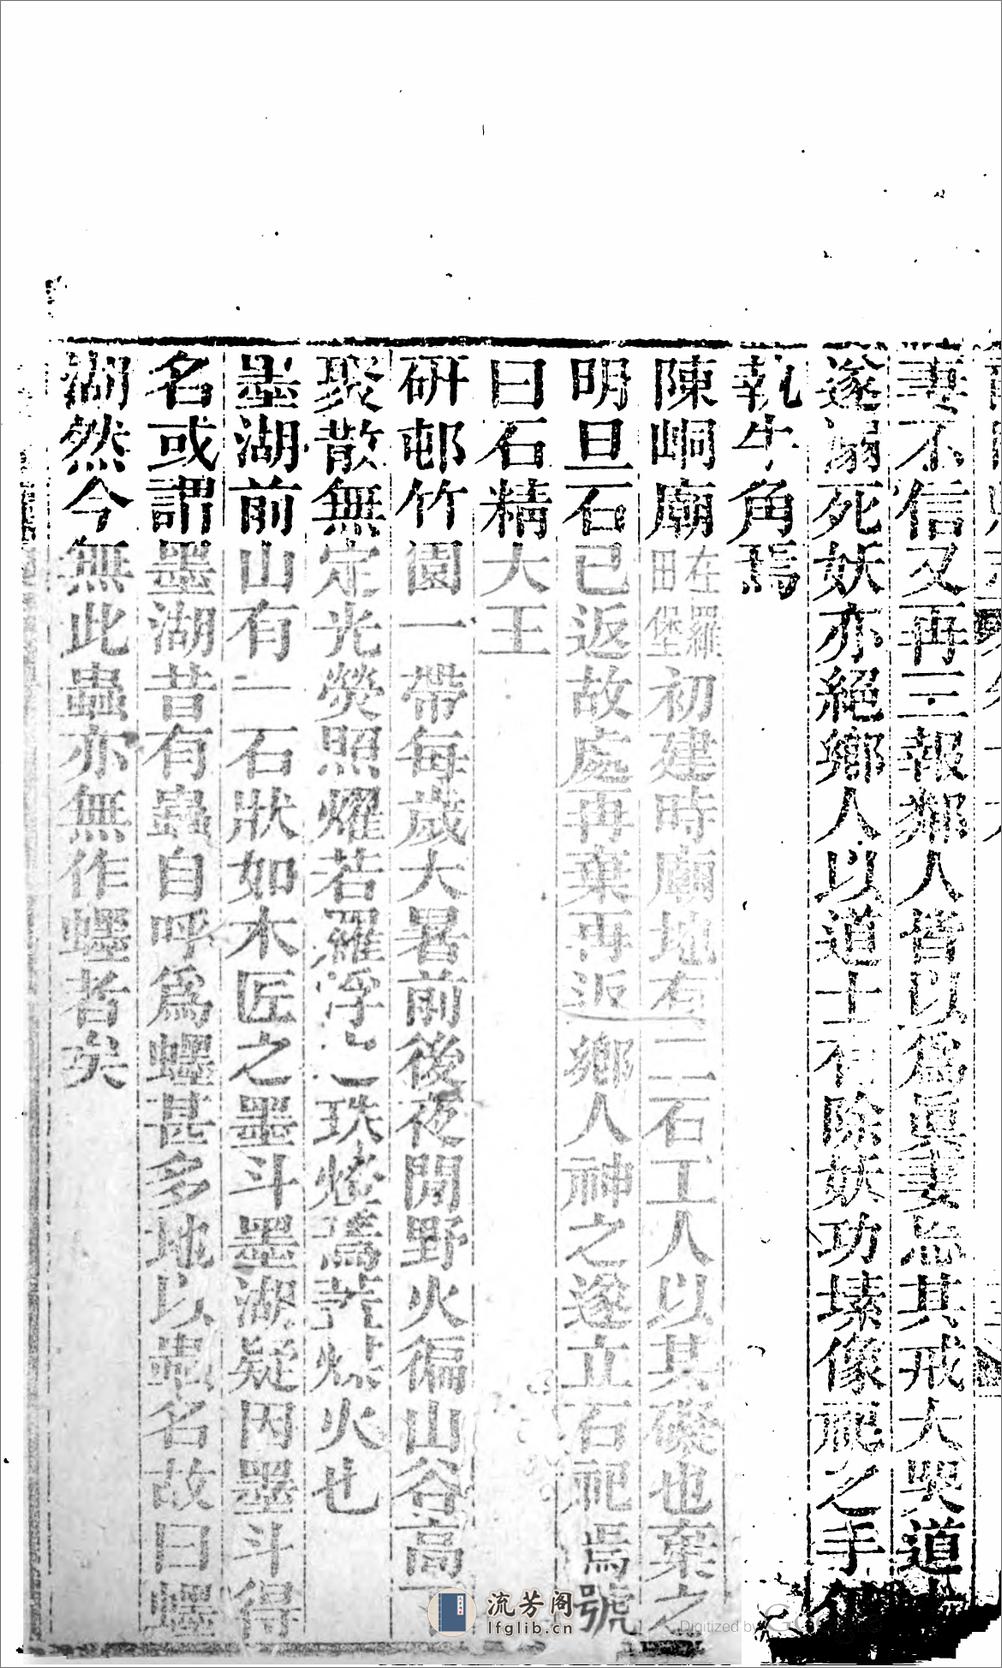 妻不信又再三報鄰人皆以爲真妻忘其戒大哭道士
遂溺死妖亦絕鄉人以道士有除妖功塑像祀之手
執牛角焉
陳峒廟左羅田堡初建時廟地有一二石工人以其礙也棄之
明旦石已返故處再棄再返鄉人神之遂立石祀焉號
曰石精大王
研邨竹園一帶每歲大暑前後夜閒野火徧山谷高下
聚散無定光熒照耀若羅浮之珠燈焉蓋燐火也
墨湖前山有一石狀如木匠之墨斗墨湖疑因墨斗得
名或謂墨湖昔有蟲自呼爲蟔甚多地以蟲名故曰蟔
湖然今無此蟲亦無作蟔者矣
流芳阁
lfglib.cn
Digitized by